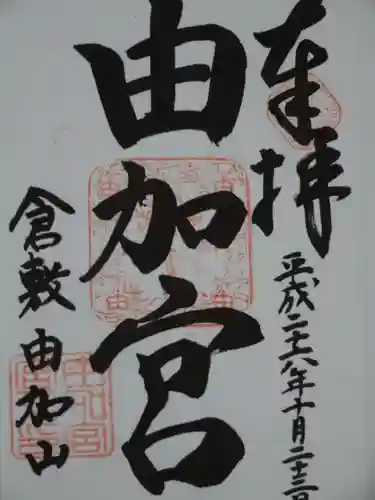 奉拝
平成二十八年十月二十三日
由加宮
倉敷 由加山